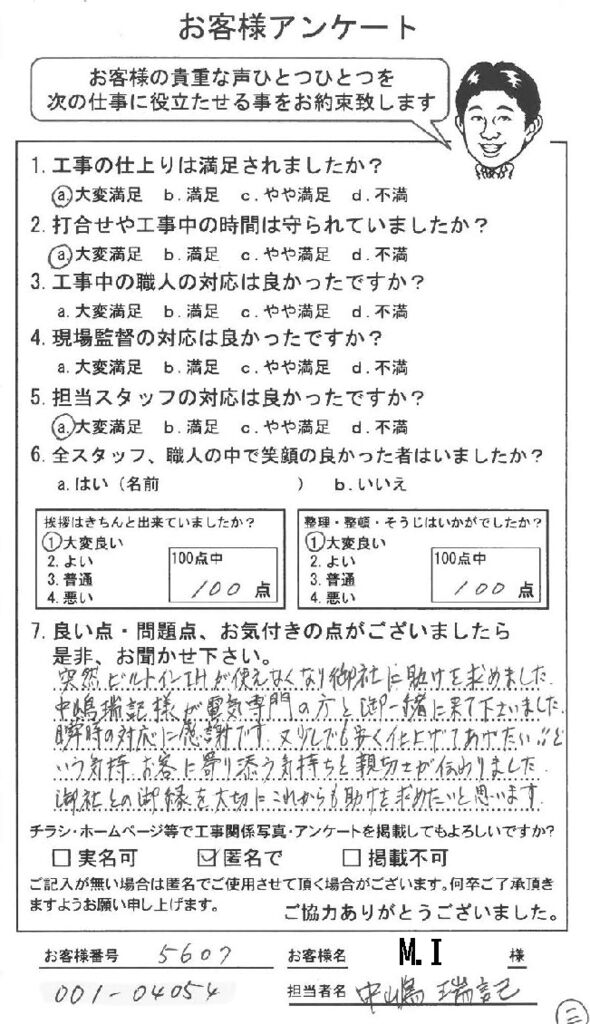 お客様アンケート
お客様の貴重な声ひとつひとつを
次の仕事に役立たせる事をお約束致します
1. 工事の仕上りは満足されましたか？
a.大変満足 b.満足 c.やや満足 d.不満
2. 打合せや工事中の時間は守られていましたか？
a.大変満足 b.満足 c.やや満足 d.不満
3. 工事中の職人の対応は良かったですか？
a.大変満足 b.満足 c.やや満足 d.不満
4. 現場監督の対応は良かったですか？
a.大変満足 b.満足 c.やや満足 d.不満
5. 担当スタッフの対応は良かったですか？
a.大変満足 b.満足 c.やや満足 d.不満
6. 全スタッフ、職人の中で笑顔の良かった者はいましたか？
a.はい（名前 ） b.いいえ
挨拶はきちんと出来ていましたか？
1.大変良い
2.よい
3.普通
4.悪い
100点中
100 点
整理・整頓・そうじはいかがでしたか？
1.大変良い
2.よい
3.普通
4.悪い
100点中
100 点
7. 良い点・問題点、お気付きの点がございましたら
是非、お聞かせ下さい。
突然ビルトインIHが使えなくなり御社に助けを求めました
中嶋瑞記様が電気専門の方と御一緒に来て下さいました
瞬時の対応に感謝です。又少しでも安く仕上げてあげたい…と
いう気持、お客に寄り添う気持ちと親切さが伝わりました
御社との御縁を大切にこれからも助けを求めたいと思います
チラシ・ホームページ等で工事関係写真・アンケートを掲載してもよろしいですか？
□ 実名可 ☑ 匿名で □ 掲載不可
ご記入が無い場合は匿名でご使用させて頂く場合がございます。何卒ご了承頂き
ますようお願い申し上げます。
ご協力ありがとうございました。
お客様番号 5607 お客様名 M.I 様
001-04054 担当者名 中嶋 瑞記
三